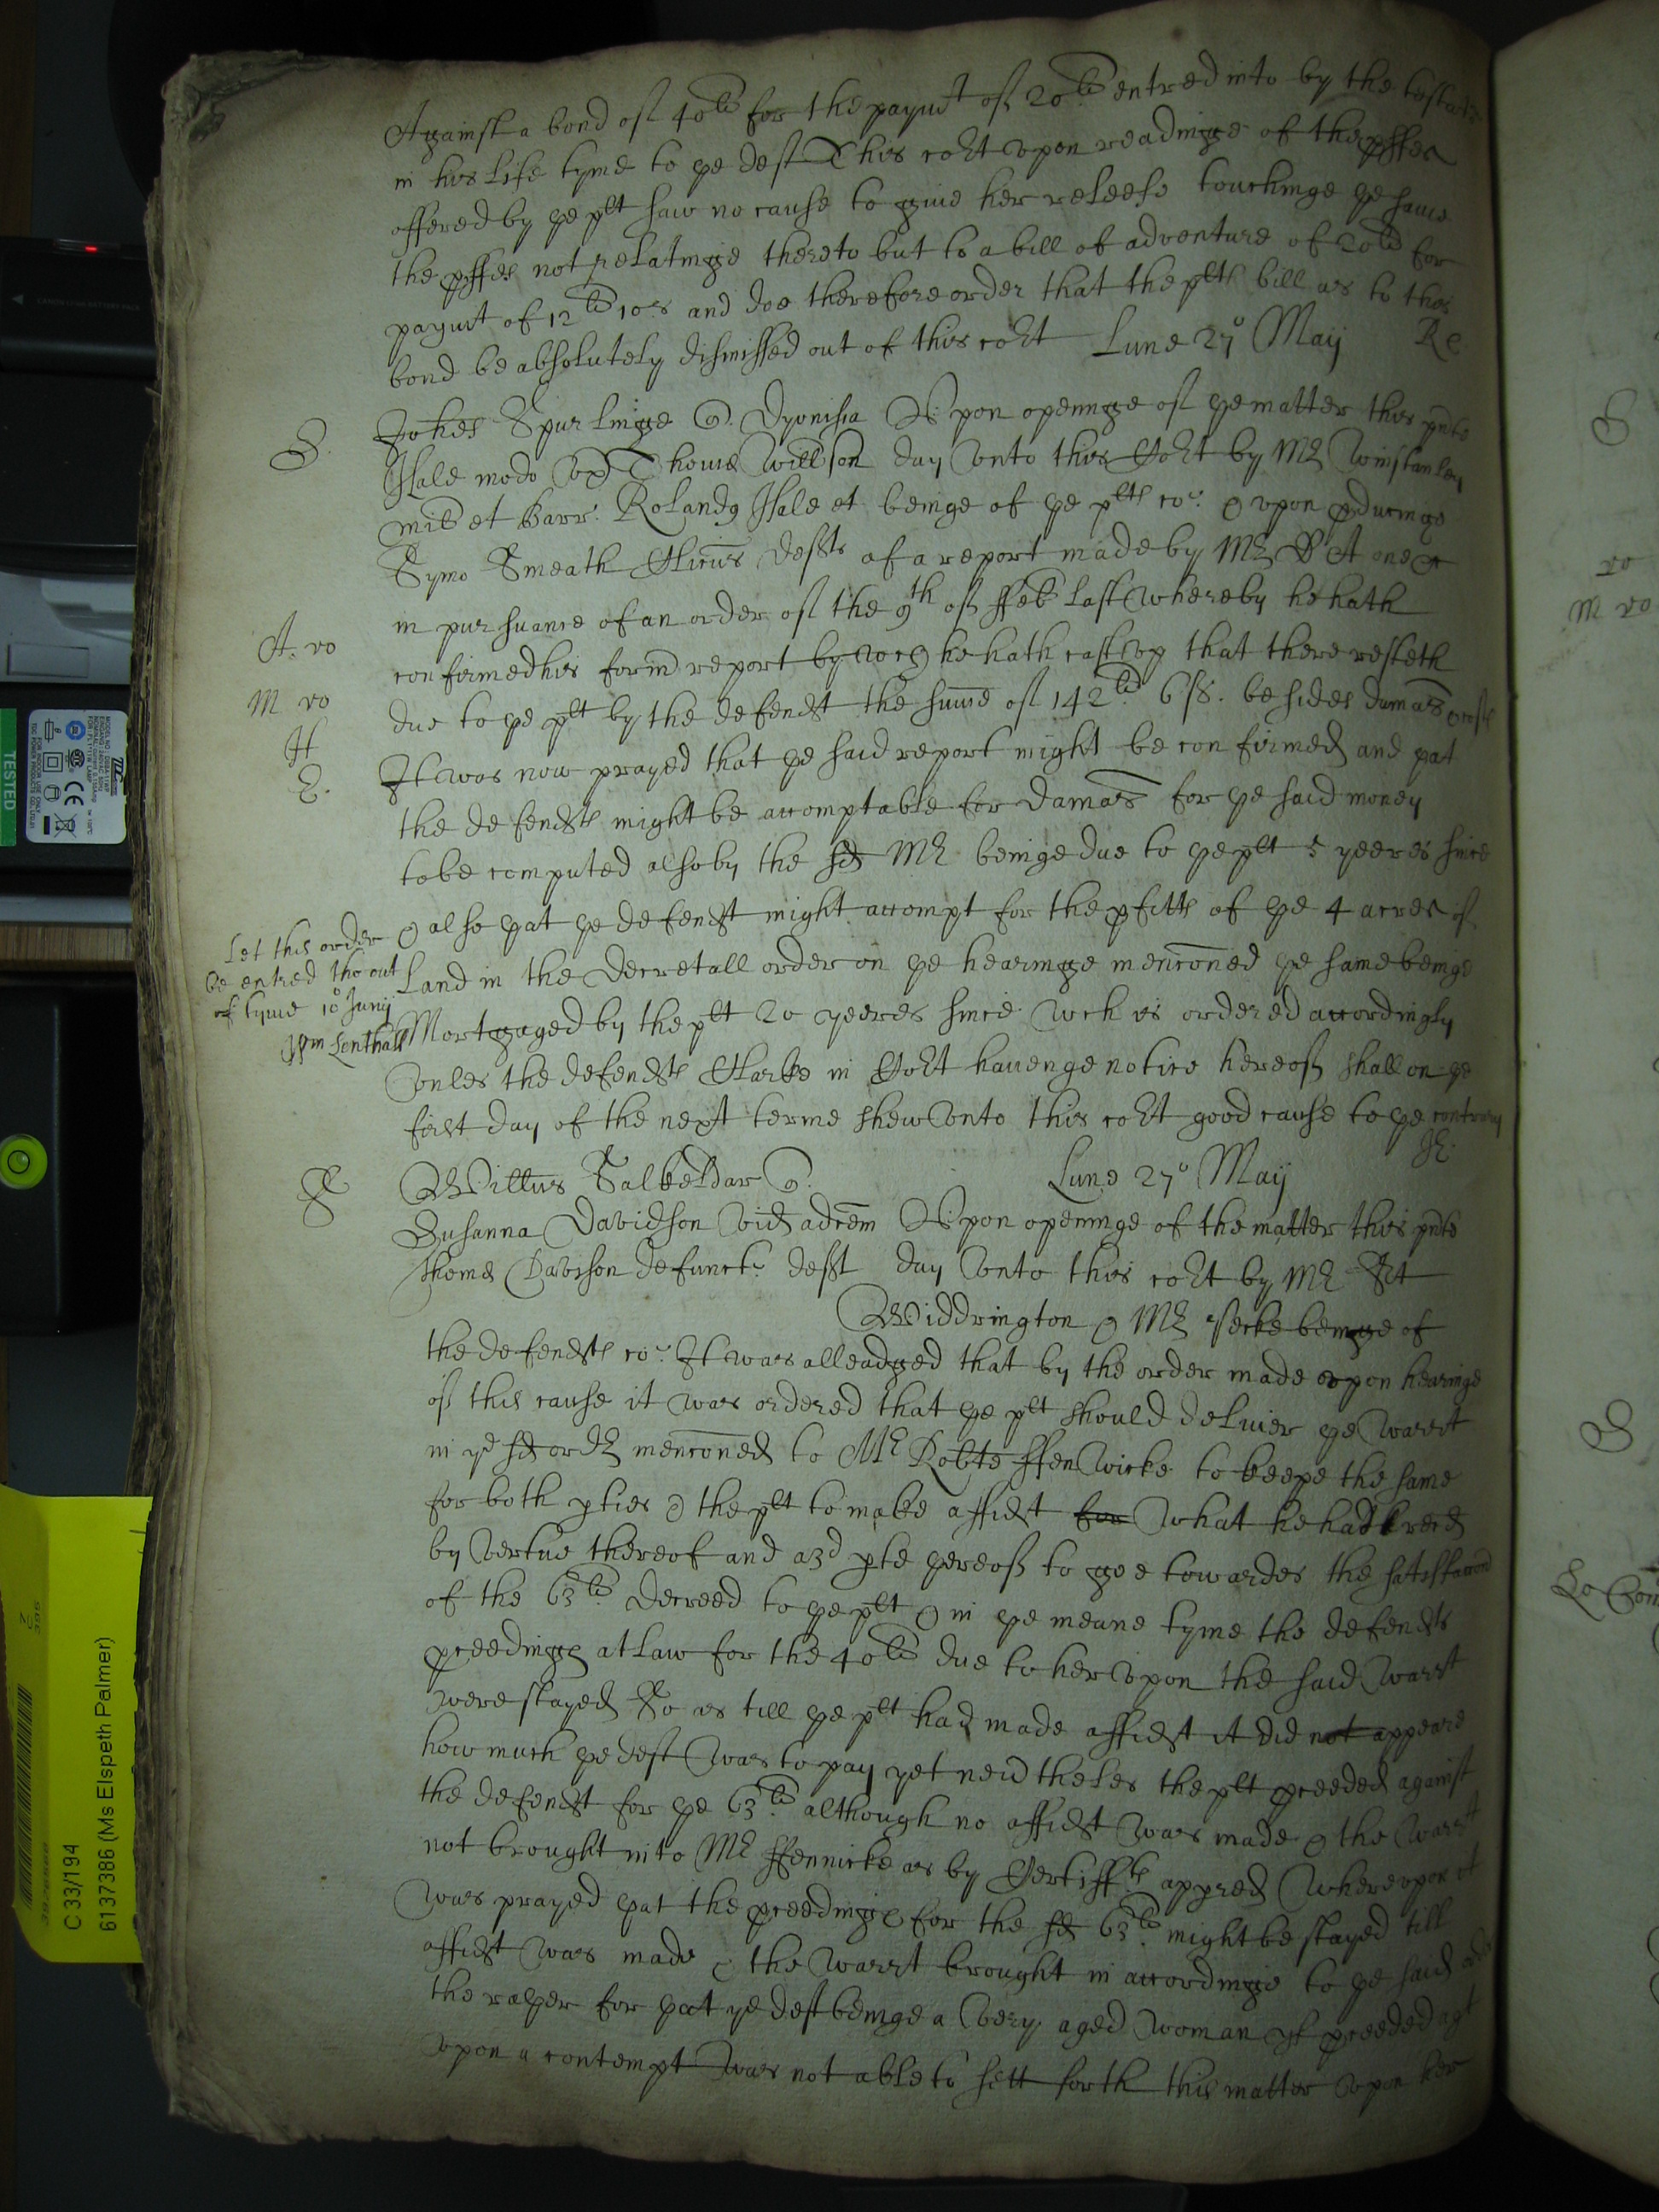 Against a bond of 40ls for the paymt of 20ls entred into by the testator
in his life tyme to ye deft This cort upon readinge of the pffes
offered by ye plt saw no cause to give her releefe touchinge ye same
the pffes not relatinge thereto but to a bill of adventure of 20ls for
paymt of 12ls 10s and doe therefore order that the plts bill as to this
bond be absolutely dismissed out of this cort Lune 27o Maij Re
S. Johes Spurlinge q. Dyonisia Upon openinge of ye matter this pnte
Hale modo ux Thome Willson day unto this Cort by Mr Winstanley
mil et Barr. Rolandg Hale et beinge of ye plts co: & upon pducinge
Symo Smeath Clicus defts of a report made by Mr
in pursuance of an order of the 9th of ffeb last whereby he hath
A. ro
confirmed his formd report by wch he hath cast up that there resteth
M ro
due to ye plt by the defendt the sume of 142ls 6s 8. besides damas & costs
H
It was now prayed that ye said report might be confirmed and yat
E.
the defendts might be accomptable for damas for ye said money
to be computed also by the sd Mr beinge due to ye plt 5 yeeres since
& also yat ye defendt might accompt for the pfitts of ye 4 acres of
Let this order
be entred tho out
of tyme 10o Junij
Wm Lenthall
Land in the decretall order on ye hearinge menconed ye same beinge
Mortgaged by the plt 20 yeeres since wch is ordered accordingly
unles the defendts Clarke in Cort havenge notice hereof shall on ye
first day of the next terme shew unto this cort good cause to ye contrary
JE.
Willus Salkeld ar q. Lune 27o Maij
Susanna Davidson vid adcem Upon openinge of the matter this pnte
Thome Davison defunct: deft day unto this cort by Mr
Widdrington & Mr Yerke beinge of
the defendts co: It was alleadged that by the order made upon hearinge
of this cause it was ordered that ye plt should deliver ye Warrt
in ye sd ordr menconed to Mr Robte ffenwicke to keepe the same
for both pties & the plt to make affidt for what he had recd
by vertue thereof and a 3d pte yereof to goe towardes the satisfaccon
of the 63ls decreed to ye plt & in ye meane tyme the defendts
pceedings at law for the 40ls due to her upon the said Warrt
were stayed So as till ye plt had made affidt it did not appeare
how much ye deft was to pay yet nevtheles the plt pceeded against
the defendt for ye 63ls although no affidt was made & the Warrt
not brought in to Mr ffennicke as by Certiffte appred Whereupon it
was prayed yat the pceedings for the sd 63ls might be stayed till
affidt was made & the Warrt brought in accordinge to ye said order
the rayer for yat ye deft beinge a very aged woman yf pceeded agt
upon a contempt was not able to sett forth this matter upon her
C 33/194
6137386 (Ms Elspeth Palmer)
TESTED